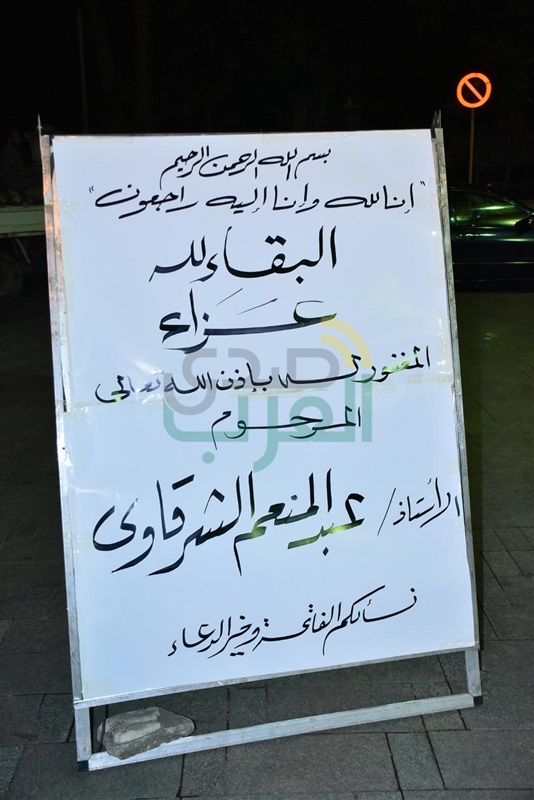 بسم الله الرحمن الرحيم
"إنا لله وإنا إليه راجعون"
البقاء لله
عَزَاء
المغفور له بإذن الله تعالى
المرحوم
الأستاذ / عبد المنعم الشرقاوى
نسألكم الفاتحة وخير الدعاء
صدى
العرب